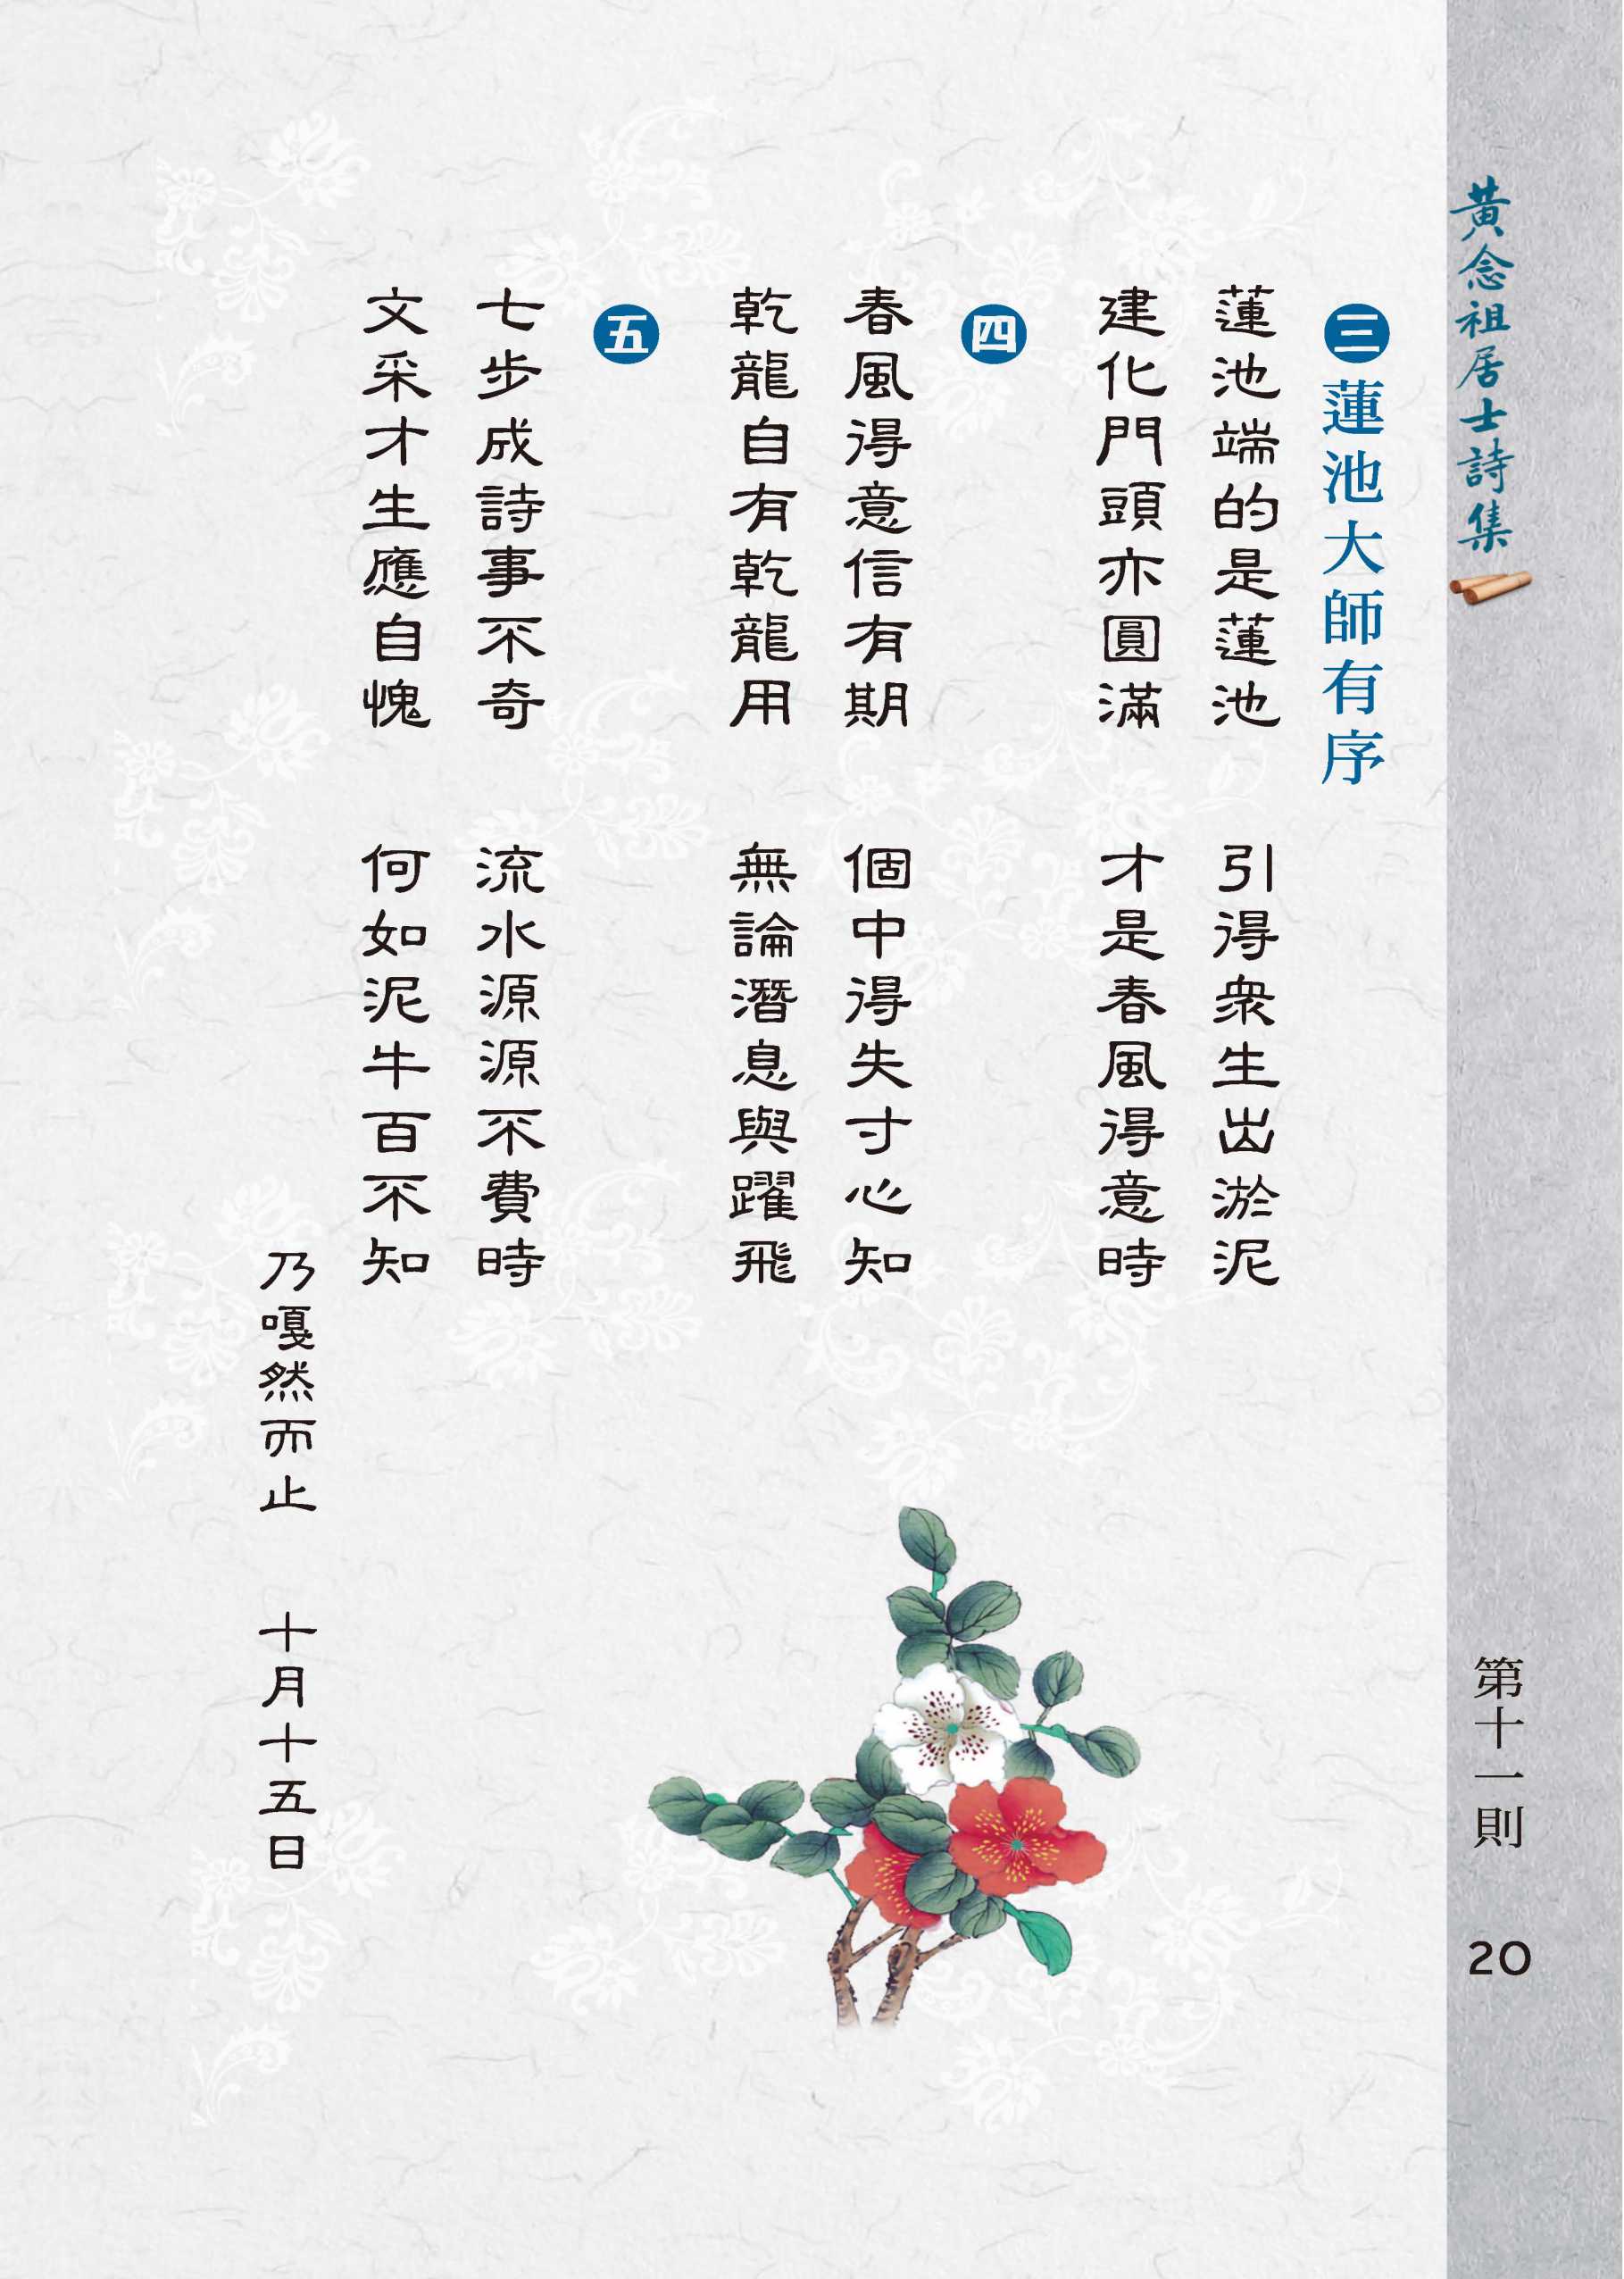 黃念祖居士詩集
第十一則
20
三 蓮池大師有序
蓮池端的是蓮池　引得衆生出淤泥
建化門頭亦圓滿　才是春風得意時
四
春風得意信有期　個中得失寸心知
乾龍自有乾龍用　無論潛息與躍飛
五
七步成詩事不奇　流水源源不費時
文采才生應自愧　何如泥牛百不知
乃嘎然而止　十月十五日